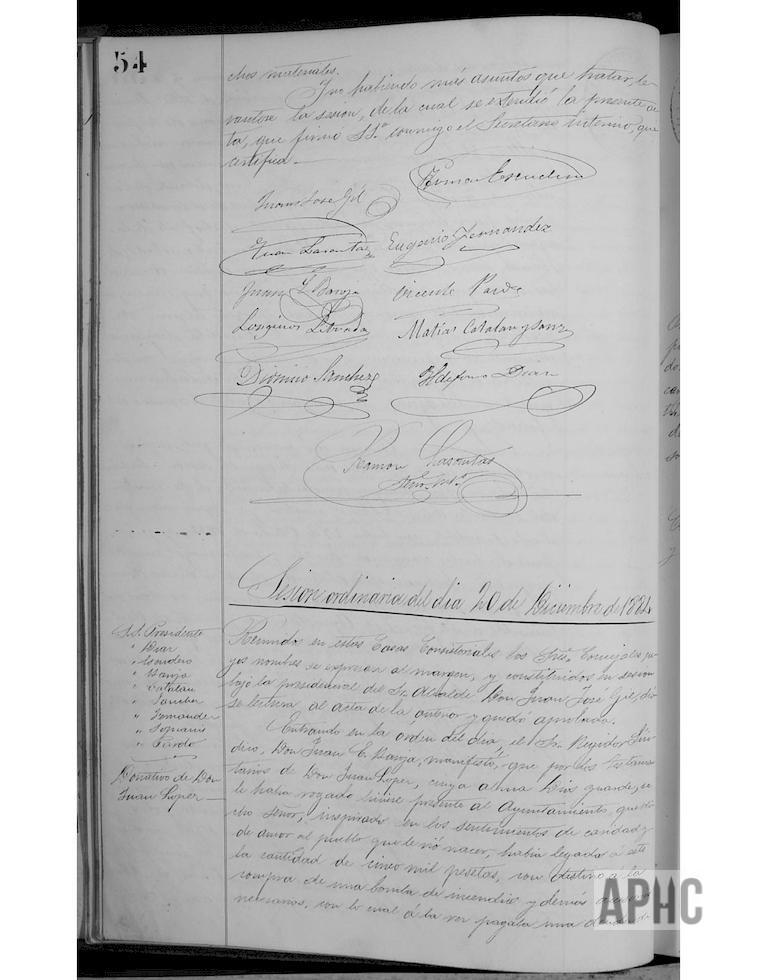 54
chos materiales.
Y no habiendo más asuntos que tratar, le-
vantose la sesion, de la cual se estendió la presente ac-
ta, que firmó S.Sª conmigo el Secretario interino, que
certifica.
Ramon Escudero
Juan José Gil
Juan Eugenio Fernandez
Juan Vicente Pardo
Longinos Matias Catalan y Sanz
Dionisio Sanchez Ildefonso Diaz
Ramon
Srio. Intº
Sesion ordinaria del dia 20 de Diciembre de 1884.
S.S. Presidente
" Diaz
" Escudero
" Baraja
" Catalan
"
" Fernandez
"
" Pardo
Donativo de Don
Juan Lopez
Reunidos en estas Casas Consistoriales los Sres. Concejales cu-
yos nombres se espresan al margen, y constituidos en sesion
bajo la presidencia del Sr. Alcalde Don Juan José Gil, dió-
se lectura al acta de la anterior y quedó aprobada.
Entrando en la orden del dia, el Sr. Regidor Sín-
dico, Don Juan E. Baraja, manifestó, que por los testamen-
tarios de Don Juan Lopez, cuya alma Dios guarde, se
le habia rogado hiciese presente al Ayuntamiento, que di-
cho Señor, inspirado en los sentimientos de caridad y
de amor al pueblo que le vió nacer, habia legado á este
la cantidad de cinco mil pesetas, con destino a la
compra de una bomba de incendios y demás
necesarios, con lo cual á la vez pagaba una deuda de
APHC